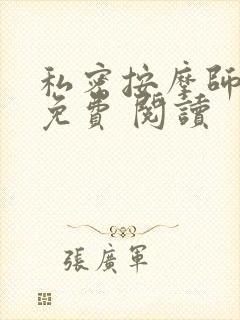 私密按摩師
免費 閱讀
張廣軍